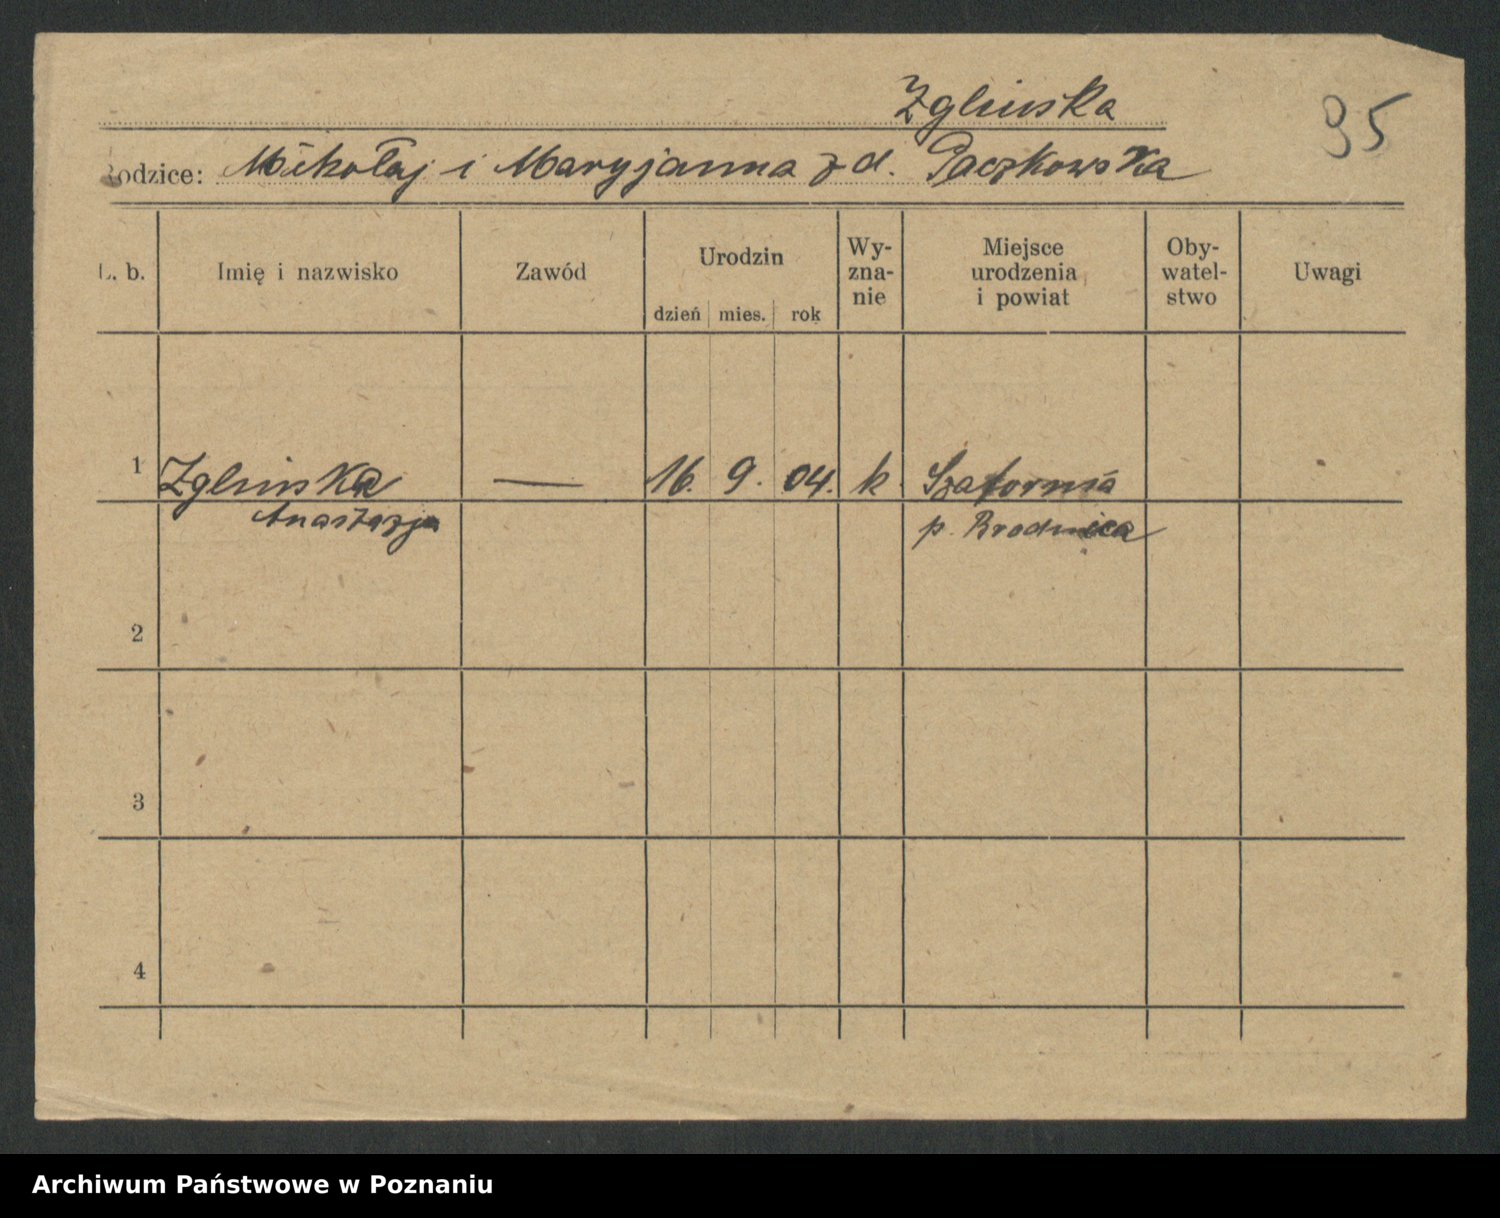 Zglinska
95
Rodzice: Mikołaj i Maryjanna z d. Paczkowska
L. b.
Imię i nazwisko
Zawód
Urodzin
dzień mies. rok
Wy-
zna-
nie
Miejsce
urodzenia
i powiat
Oby-
watel-
stwo
Uwagi
1 Zglinska — 16. 9. 04. k. Szafornia
Anastazja p. Brodnica
2
3
4
Archiwum Państwowe w Poznaniu